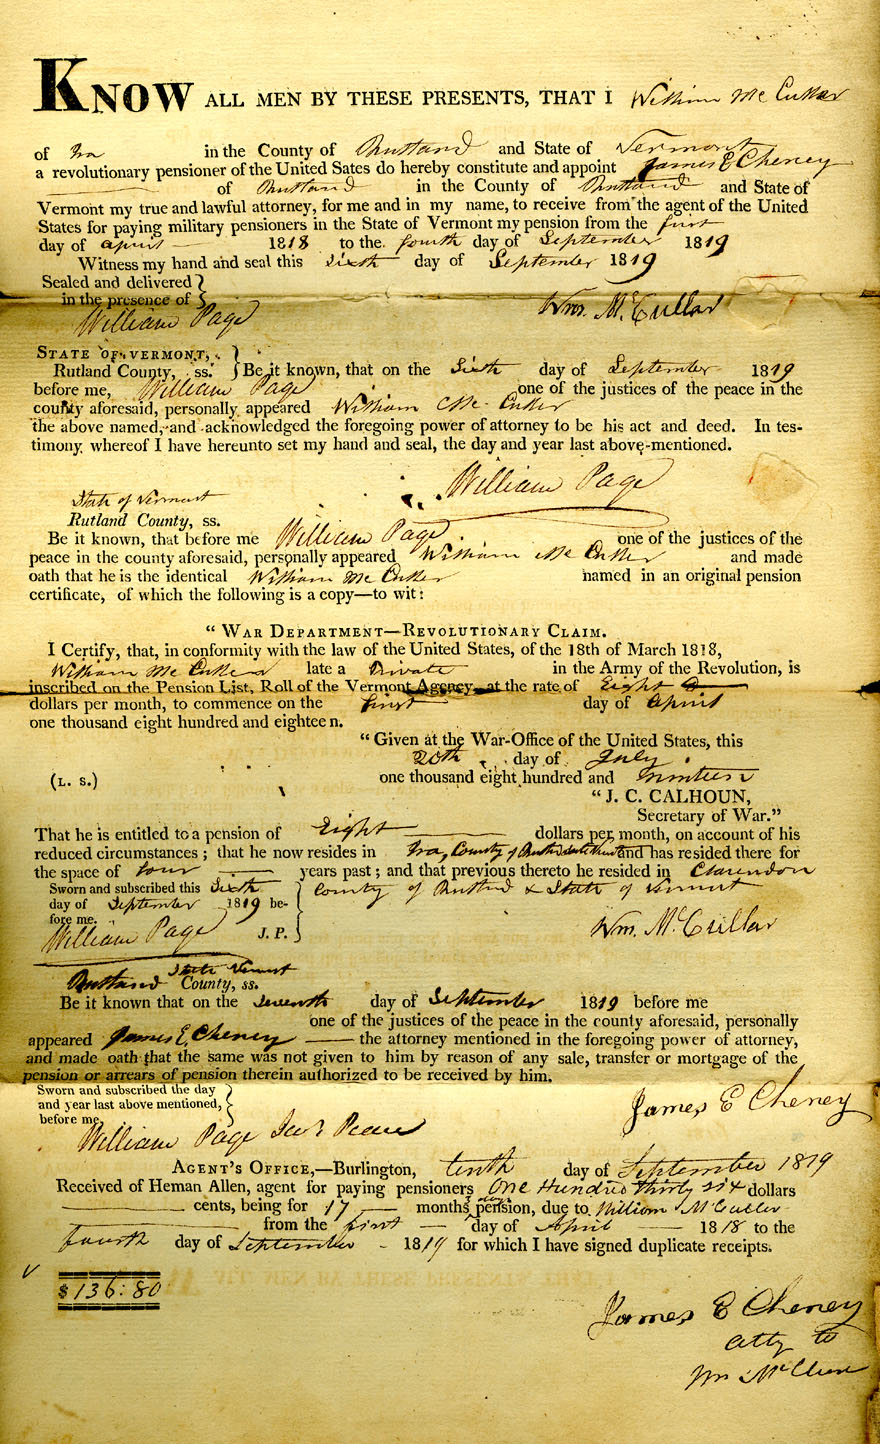 KNOW ALL MEN BY THESE PRESENTS, THAT I William Mc Cullar
of Ira in the County of Rutland and State of Vermont
a revolutionary pensioner of the United Sates do hereby constitute and appoint James E Cheney
of Rutland in the County of Rutland and State of
Vermont my true and lawful attorney, for me and in my name, to receive from the agent of the United
States for paying military pensioners in the State of Vermont my pension from the first
day of april 1818 to the fourth day of September 1819
Witness my hand and seal this sixth day of September 1819
Sealed and delivered
in the presence of
William Page
Wm. McCullar
STATE OF VERMONT,
Rutland County, ss. Be it known, that on the Sixth day of September 1819
before me, William Page one of the justices of the peace in the
county aforesaid, personally appeared William Mc Culler
the above named, and acknowledged the foregoing power of attorney to be his act and deed. In tes-
timony whereof I have hereunto set my hand and seal, the day and year last above-mentioned.
William Page
State of Vermont
Rutland County, ss.
Be it known, that before me William Page one of the justices of the
peace in the county aforesaid, personally appeared William Mc Culler and made
oath that he is the identical William Mc Culler named in an original pension
certificate, of which the following is a copy—to wit:
“ WAR DEPARTMENT—REVOLUTIONARY CLAIM.
I Certify, that, in conformity with the law of the United States, of the 18th of March 1818,
William Mc Culler late a Private in the Army of the Revolution, is
inscribed on the Pension List, Roll of the Vermont Agency, at the rate of Eight
dollars per month, to commence on the first day of April
one thousand eight hundred and eighteen.
“ Given at the War-Office of the United States, this
20th day of July
one thousand eight hundred and nineteen
(L. S.)
“ J. C. CALHOUN,
Secretary of War.”
That he is entitled to a pension of Eight dollars per month, on account of his
reduced circumstances ; that he now resides in Ira, County of and has resided there for
the space of four years past ; and that previous thereto he resided in Clarendon
County of Rutland & State of Vermont
Sworn and subscribed this Sixth
day of September 1819 be-
fore me.
William Page J. P.
Wm. McCullar
State Vermont
Rutland County, ss.
Be it known that on the Seventh day of September 1819 before me
one of the justices of the peace in the county aforesaid, personally
appeared James E. Cheney the attorney mentioned in the foregoing power of attorney,
and made oath that the same was not given to him by reason of any sale, transfer or mortgage of the
pension or arrears of pension therein authorized to be received by him.
Sworn and subscribed the day
and year last above mentioned,
before me
James E Cheney
William Page Peace
AGENT'S OFFICE,—Burlington, tenth day of September 1819
Received of Heman Allen, agent for paying pensioners One Hundred thirty six dollars
cents, being for 17 months pension, due to William McCuller
from the first day of April 1818 to the
fourth day of September 1819 for which I have signed duplicate receipts.
$136:80
James E Cheney
atty to
Wm